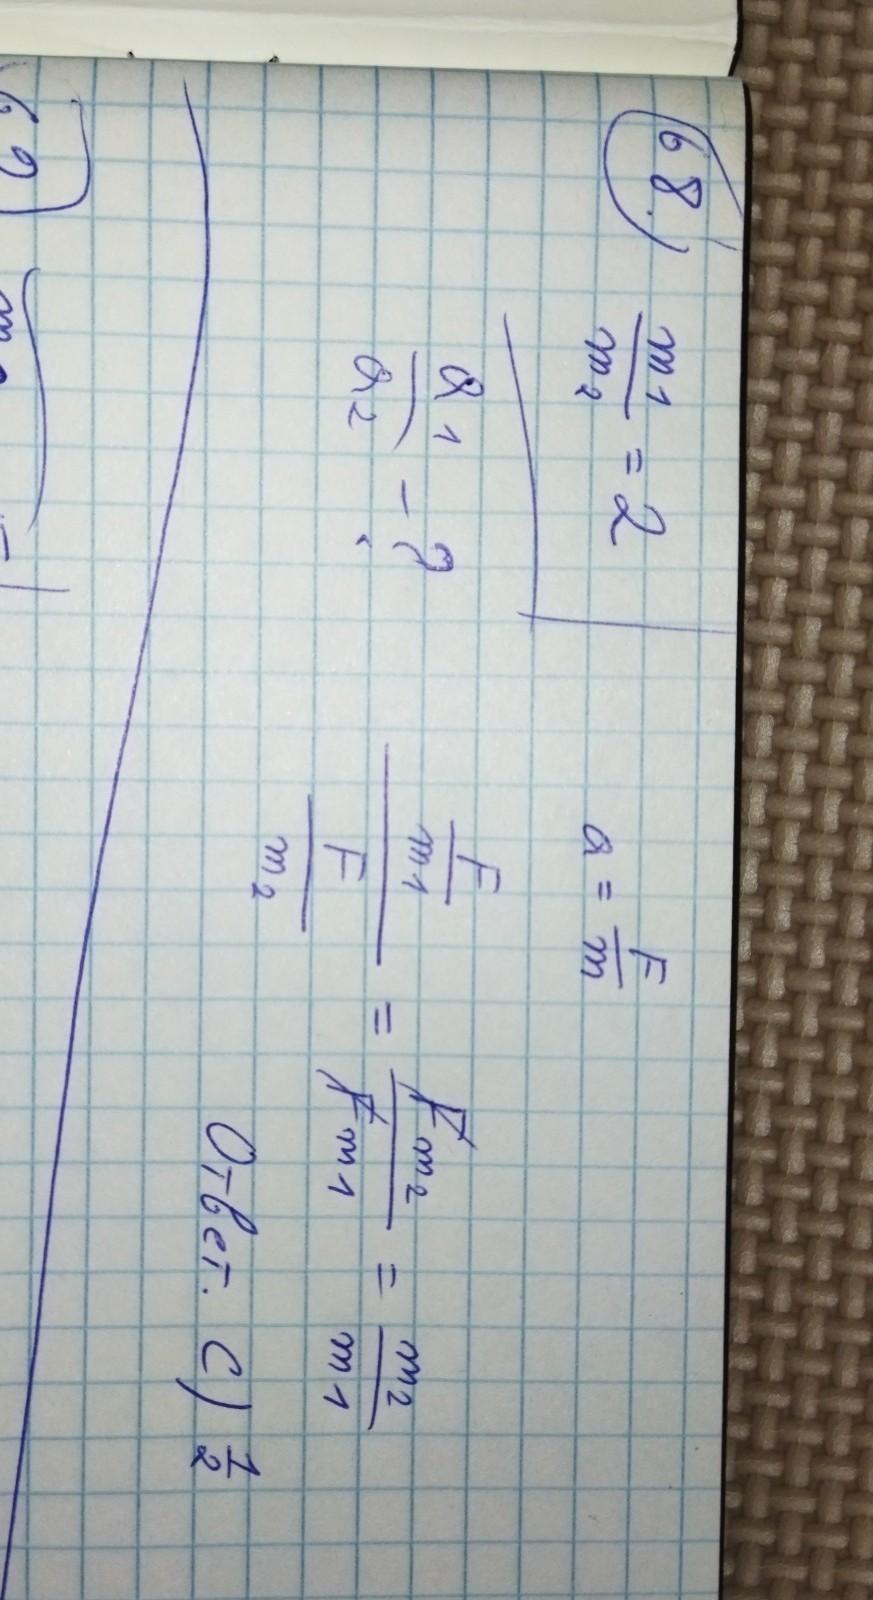 68.
m1/m2 = 2
a = F/m
a1/a2 - ?
F/m1 / F/m2 = Fm2/Fm1 = m2/m1
Ответ. C) 1/2
69